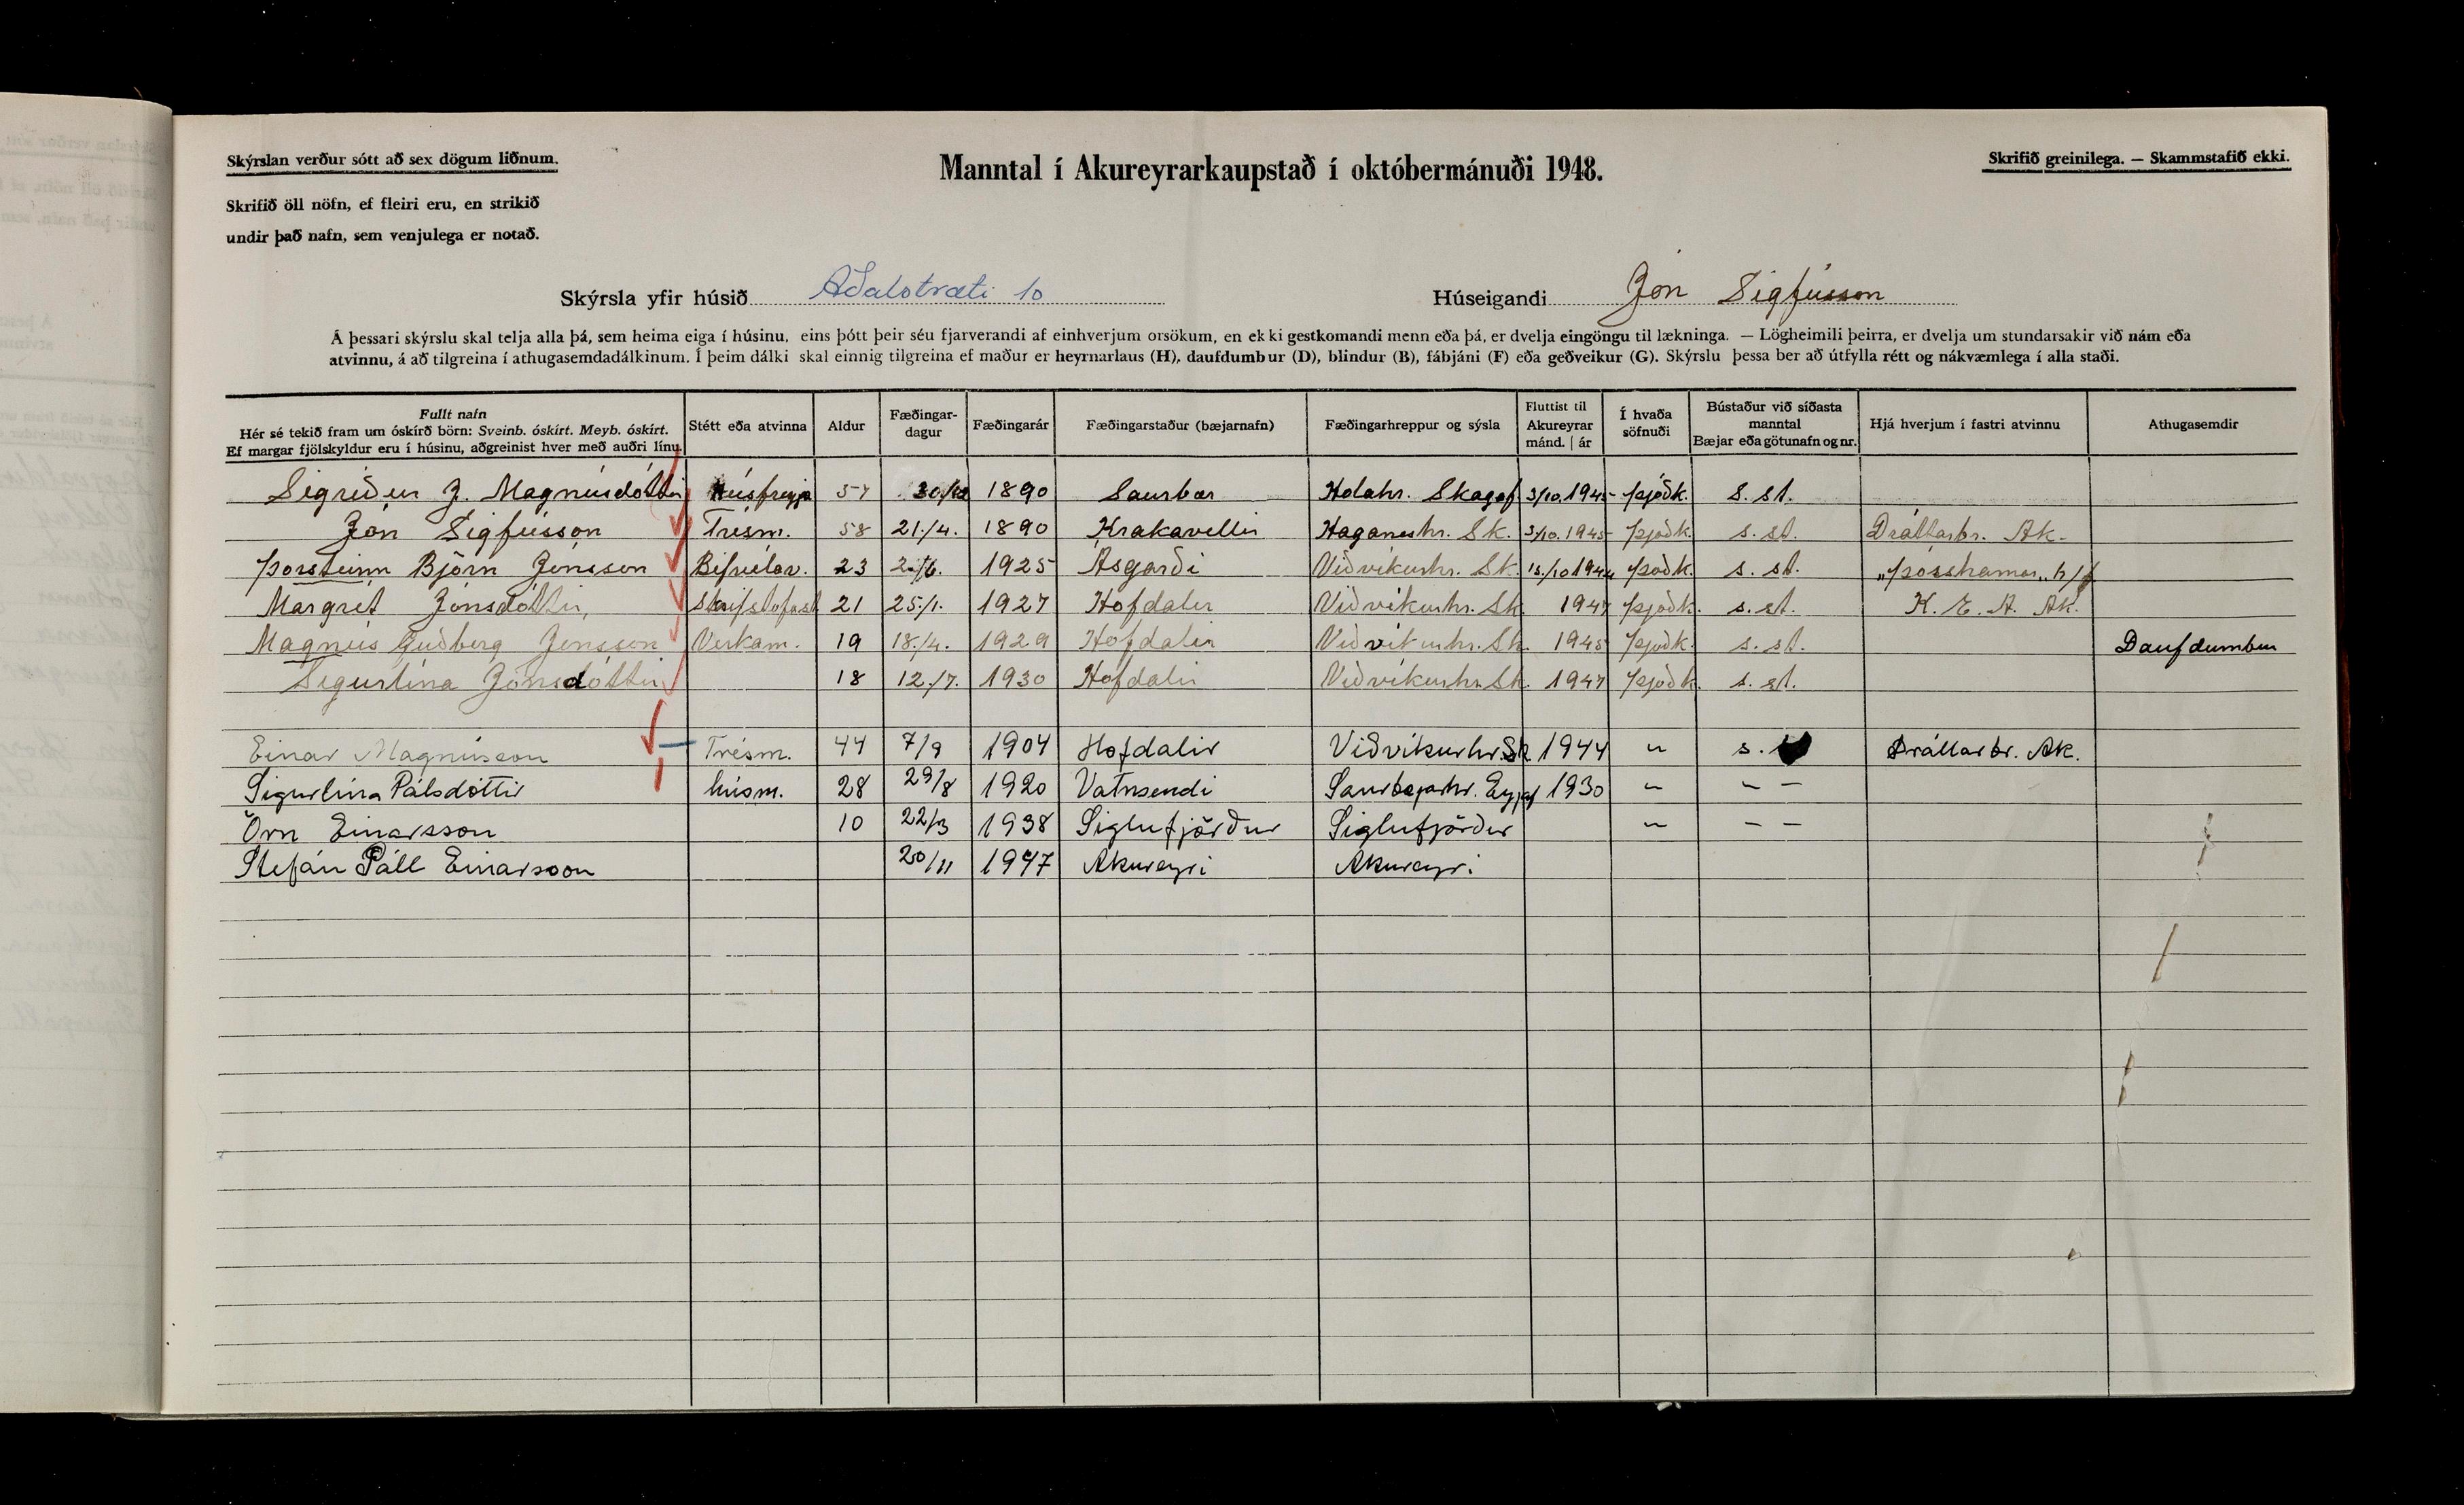 Skýrslan verður sótt að sex dögum liðnum.
Manntal í Akureyrarkaupstað í októbermánuði 1948.
Skrifið greinilega. — Skammstafið ekki.
Skrifið öll nöfn, ef fleiri eru, en strikið
undir það nafn, sem venjulega er notað.
Skýrsla yfir húsið Aðalstræti 10 Húseigandi Jón Sigfússon
Á þessari skýrslu skal telja alla þá, sem heima eiga í húsinu, eins þótt þeir séu fjarverandi af einhverjum orsökum, en ekki gestkomandi menn eða þá, er dvelja eingöngu til lækninga. — Lögheimili þeirra, er dvelja um stundarsakir við nám eða
atvinnu, á að tilgreina í athugasemdadálkinum. Í þeim dálki skal einnig tilgreina ef maður er heyrnarlaus (H), daufdumbur (D), blindur (B), fábjáni (F) eða geðveikur (G). Skýrslu þessa ber að útfylla rétt og nákvæmlega í alla staði.
Fullt nafn
Hér sé tekið fram um óskírð börn: Sveinb. óskírt. Meyb. óskírt.
Ef margar fjölskyldur eru í húsinu, aðgreinist hver með auðri línu.
Stétt eða atvinna
Aldur
Fæðingar-
dagur
Fæðingarár
Fæðingarstaður (bæjarnafn)
Fæðingarhreppur og sýsla
Fluttist til
Akureyrar
mánd. | ár
Í hvaða
söfnuði
Bústaður við síðasta
manntal
Bæjar eða götunafn og nr.
Hjá hverjum í fastri atvinnu
Athugasemdir
Sigríður J. Magnúsdóttir Húsfreyja 57 30/12 1890 Saurbær Holahr. Skagaf. 3/10.1945 þjóðk. s. st.
Jón Sigfússon Trésm. 58 21./4. 1890 Krakavellir Haganeshr. Sk. 3/10.1945 þjóðk. s. st. Dráttarbr. Ak.
Þorsteinn Björn Jónsson Bifvélav. 23 1925 Ásgarði Viðvíkurhr. Sk. 15./10 1944 þjóðk. s. st. „Þórshamar„ h/f
Margrét Jónsdóttir, Skrifstofust 21 25./1. 1927 Hofdalir Viðvíkurhr. Sk. 1947 þjóðk. s. st. K. E. A. Ak.
Magnús Guðberg Jónsson Verkam. 19 18./4. 1929 Hofdalir Viðvíkurhr. Sk. 1945 þjóðk. s. st. Daufdumbur
Sigurlína Jónsdóttir 18 12./7. 1930 Hofdalir Viðvíkurhr. Sk. 1947 þjóðk. s. st.
Einar Magnússon Trésm. 44 7/9 1904 Hofdalir Viðvíkurhr. Sk 1944 " s. Dráttarbr. Ak.
Sigurlína Pálsdóttir húsm. 28 29/8 1920 Vatnsendi Saurbæjarhr. Eyjaf 1930 " — —
Örn Einarsson 10 22/3 1938 Siglufjörður Siglufjörður " — —
Stefán Páll Einarsson 20/11 1947 Akureyri Akureyri